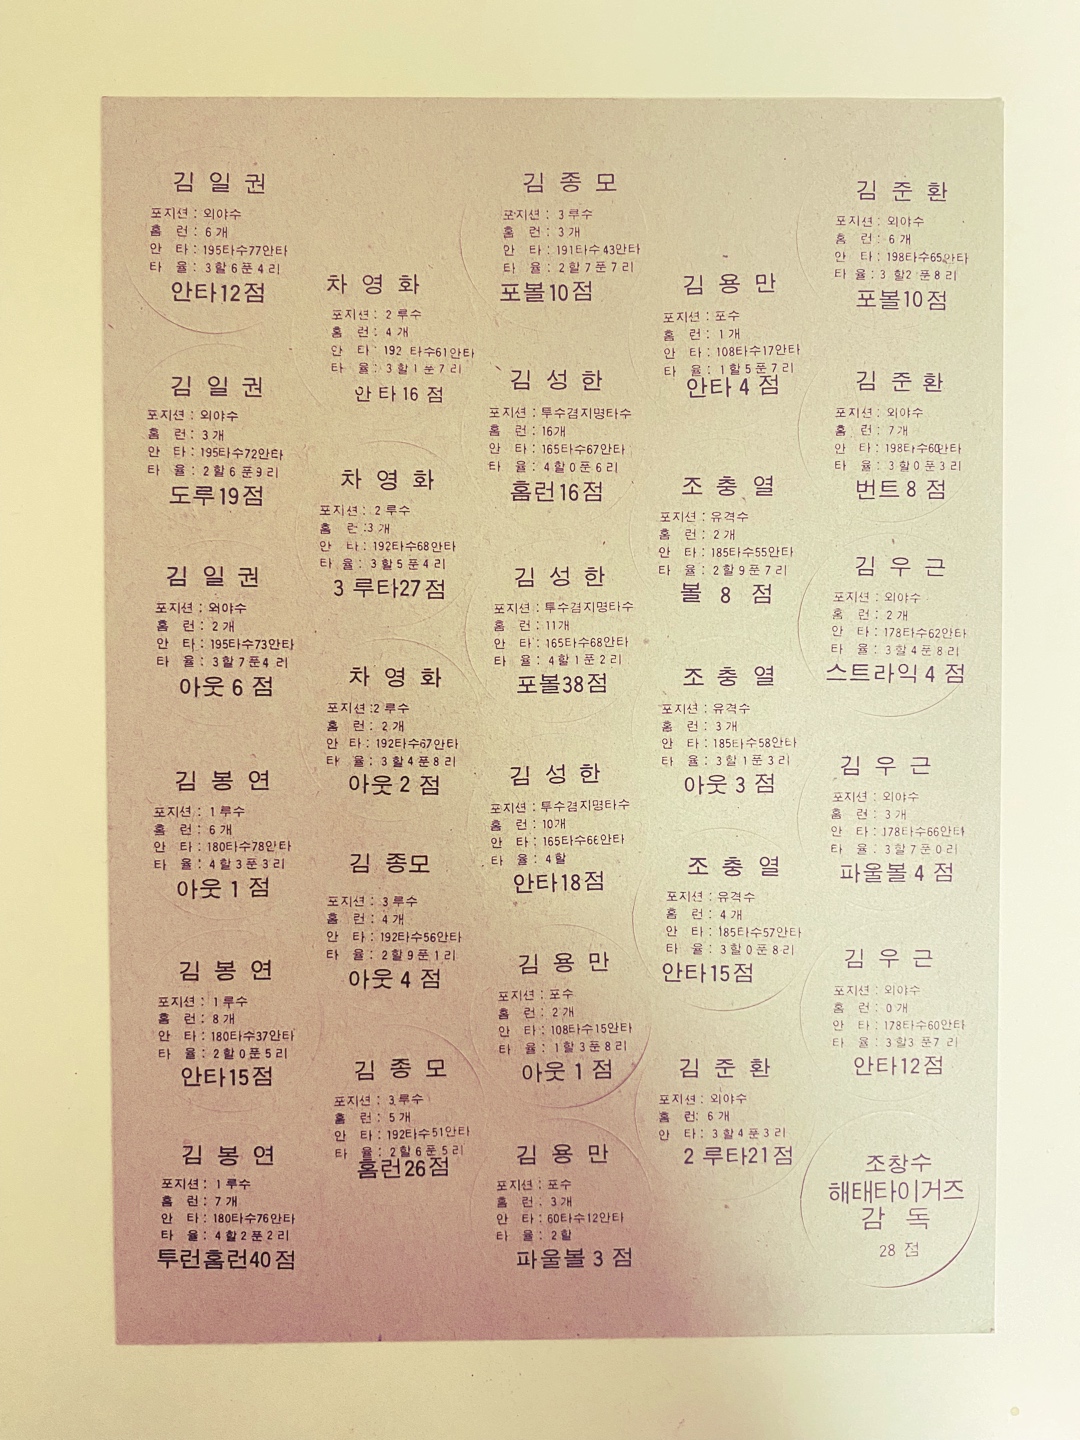 김 일 권
포지션 : 외야수
홈 런 : 6 개
안 타 : 195타수77안타
타 율 : 3 할 6 푼 4 리
안타12점
김 일 권
포지션 : 외야수
홈 런 : 3 개
안 타 : 195타수72안타
타 율 : 2 할 6 푼 9 리
도루19점
김 일 권
포지션 : 외야수
홈 런 : 2 개
안 타 : 195타수73안타
타 율 : 3 할 7 푼 4 리
아웃 6 점
김 봉 연
포지션 : 1 루수
홈 런 : 6 개
안 타 : 180타수78안타
타 율 : 4 할 3 푼 3 리
아웃 1 점
김 봉 연
포지션 : 1 루수
홈 런 : 8 개
안 타 : 180타수37안타
타 율 : 2 할 0 푼 5 리
안타15점
김 봉 연
포지션 : 1 루수
홈 런 : 7 개
안 타 : 180타수76안타
타 율 : 4 할 2 푼 2 리
투런홈런40점
차 영 화
포지션 : 2 루수
홈 런 : 4 개
안 타 : 192 타수61안타
타 율 : 3 할 1 푼 7 리
안 타 16 점
차 영 화
포지션 : 2 루수
홈 런 :3 개
안 타 : 192타수68안타
타 율 : 3 할 5 푼 4 리
3 루타27점
차 영 화
포지션 :2 루수
홈 런 : 2 개
안 타 : 192타수67안타
타 율 : 3 할 4 푼 8 리
아웃 2 점
김 종모
포지션 : 3 루수
홈 런 : 4 개
안 타 : 192타수56안타
타 율 : 2 할 9 푼 1 리
아웃 4 점
김 종 모
포지션 : 3 루수
홈 런 : 5 개
안 타 : 192타수51안타
타 율 : 2 할 6 푼 5 리
홈런26점
김 종 모
포지션 : 3 루수
홈 런 : 3 개
안 타 : 191타수43안타
타 율 : 2 할 7 푼 7 리
포볼10점
김 성 한
포지션 : 투수겸지명타수
홈 런 : 16개
안 타 : 165타수67안타
타 율 : 4 할 0 푼 6 리
홈런16점
김 성 한
포지션 : 투수겸지명타수
홈 런 : 11개
안 타 : 165타수68안타
타 율 : 4 할 1 푼 2 리
포볼38점
김 성 한
포지션 : 투수겸지명타수
홈 런 : 10개
안 타 : 165타수66안타
타 율 : 4 할
안타18점
김 용 만
포지션 : 포수
홈 런 : 2 개
안 타 : 108타수15안타
타 율 : 1 할 3 푼 8 리
아웃 1 점
김 용 만
포지션 : 포수
홈 런 : 3 개
안 타 : 60타수12안타
타 율 : 2 할
파울볼 3 점
김 용 만
포지션 : 포수
홈 런 : 1 개
안 타 : 108타수17안타
타 율 : 1 할 5 푼 7 리
안타 4 점
조 충 열
포지션 : 유격수
홈 런 : 2 개
안 타 : 185타수55안타
타 율 : 2 할 9 푼 7 리
볼 8 점
조 충 열
포지션 : 유격수
홈 런 : 3 개
안 타 : 185타수58안타
타 율 : 3 할 1 푼 3 리
아웃 3 점
조 충 열
포지션 : 유격수
홈 런 : 4 개
안 타 : 185타수57안타
타 율 : 3 할 0 푼 8 리
안타15점
김 준 환
포지션 : 외야수
홈 런: 6 개
안 타 : 3 할 4 푼 3 리
2 루타21점
김 준 환
포지션 : 외야수
홈 런 : 6 개
안 타 : 198타수65안타
타 율 : 3 할2 푼 8 리
포볼10점
김 준 환
포지션 : 외야수
홈 런 : 7 개
안 타 : 198타수60안타
타 율 : 3 할 0 푼 3 리
번트 8 점
김 우 근
포지션 : 외야수
홈 런 : 2 개
안 타 : 178타수62안타
타 율 : 3 할 4 푼 8 리
스트라익 4 점
김 우 근
포지션 : 외야수
홈 런 : 3 개
안 타 : 178타수66안타
타 율 : 3 할 7 푼 0 리
파울볼 4 점
김 우 근
포지션 : 외야수
홈 런 : 0 개
안 타 : 178타수60안타
타 율 : 3 할3 푼 7 리
안타12점
조창수
해태타이거즈
감 독
28 점